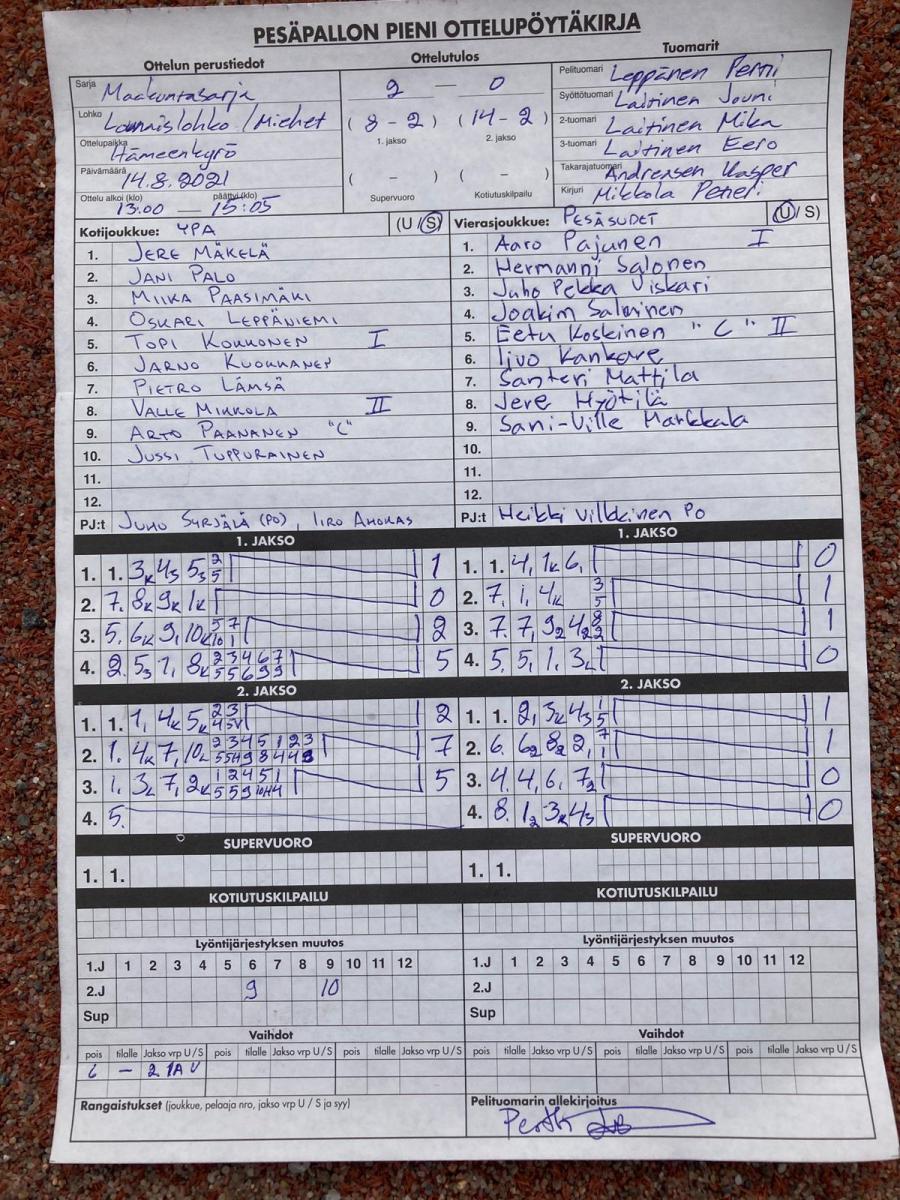 PESÄPALLON PIENI OTTELUPÖYTÄKIRJA
Ottelun perustiedot
Sarja Maakuntasarja
Lohko Lounaislohko / Miehet
Ottelupaikka Hämeenkyrö
Päivämäärä 14.8.2021
Ottelu alkoi (klo) päättyi (klo)
13.00 — 15:05
Ottelutulos
2 — 0
(8 - 2) (14 - 2)
1. jakso 2. jakso
( - ) ( - )
Supervuoro Kotiutuskilpailu
Tuomarit
Pelituomari Leppänen Pertti
Syöttötuomari Laitinen Jouni
2-tuomari Laitinen Mika
3-tuomari Laitinen Eero
Takarajatuomari Andreasen Kasper
Kirjuri Mikkola Peteri
Kotijoukkue: YPA (U/S)
1. JERE MÄKELÄ
2. JANI PALO
3. MIIKA PAASIMÄKI
4. OSKARI LEPPÄNIEMI
5. TOPI KOKKONEN I
6. JARNO KUOKKANEN
7. PIETRO LÄMSÄ
8. VALLE MIKKOLA II
9. ARTO PAANANEN "C"
10. JUSSI TUPPURAINEN
11.
12.
PJ:t JUHO SYRJÄLÄ (PO), IIRO AHOKAS
Vierasjoukkue: PESÄSUDET (U/S)
1. Aaro Pajunen I
2. Hermanni Salonen
3. Juho Pekka Viskari
4. Joakim Salminen
5. Eetu Koskinen "C" II
6. Iivo Kankare
7. Santeri Mattila
8. Jere Hyötilä
9. Sani-Ville Markkala
10.
11.
12.
PJ:t Heikki Vilkkinen Po
1. JAKSO
1. 1. 3K 43 53 2 5 1
2. 7. 8K 9K 1K 0
3. 5. 6K 9, 10K 2
4. 2. 53 7, 8K 2 3 4 6 7 5 5 6 9 9 5
1. JAKSO
1. 1. 4, 1K 6, 0
2. 7, 1, 4K 3 5 1
3. 7. 7, 92 42 8 2 1
4. 5. 5, 1. 3L 0
2. JAKSO
1. 1. 1, 4K 5K 2
2. 1. 4K 7, 10L 7
3. 1. 3L 7, 2K 5
4. 5.
2. JAKSO
1. 1. 2, 3K 43 1 5 1
2. 6. 62 82 2, 7 1 1
3. 4. 4, 6, 72 0
4. 8. 12 3K 43 0
SUPERVUORO
1. 1.
SUPERVUORO
1. 1.
KOTIUTUSKILPAILU
KOTIUTUSKILPAILU
Lyöntijärjestyksen muutos
1.J 1 2 3 4 5 6 7 8 9 10 11 12
2.J 9 10
Sup
Lyöntijärjestyksen muutos
1.J 1 2 3 4 5 6 7 8 9 10 11 12
2.J
Sup
Vaihdot
pois tilalle Jakso vrp U/S pois tilalle Jakso vrp U/S pois tilalle Jakso vrp U/S
6 — 2 1A U
Vaihdot
pois tilalle Jakso vrp U/S pois tilalle Jakso vrp U/S pois tilalle Jakso vrp U/S
Rangaistukset (joukkue, pelaaja nro, jakso vrp U / S ja syy)
Pelituomarin allekirjoitus